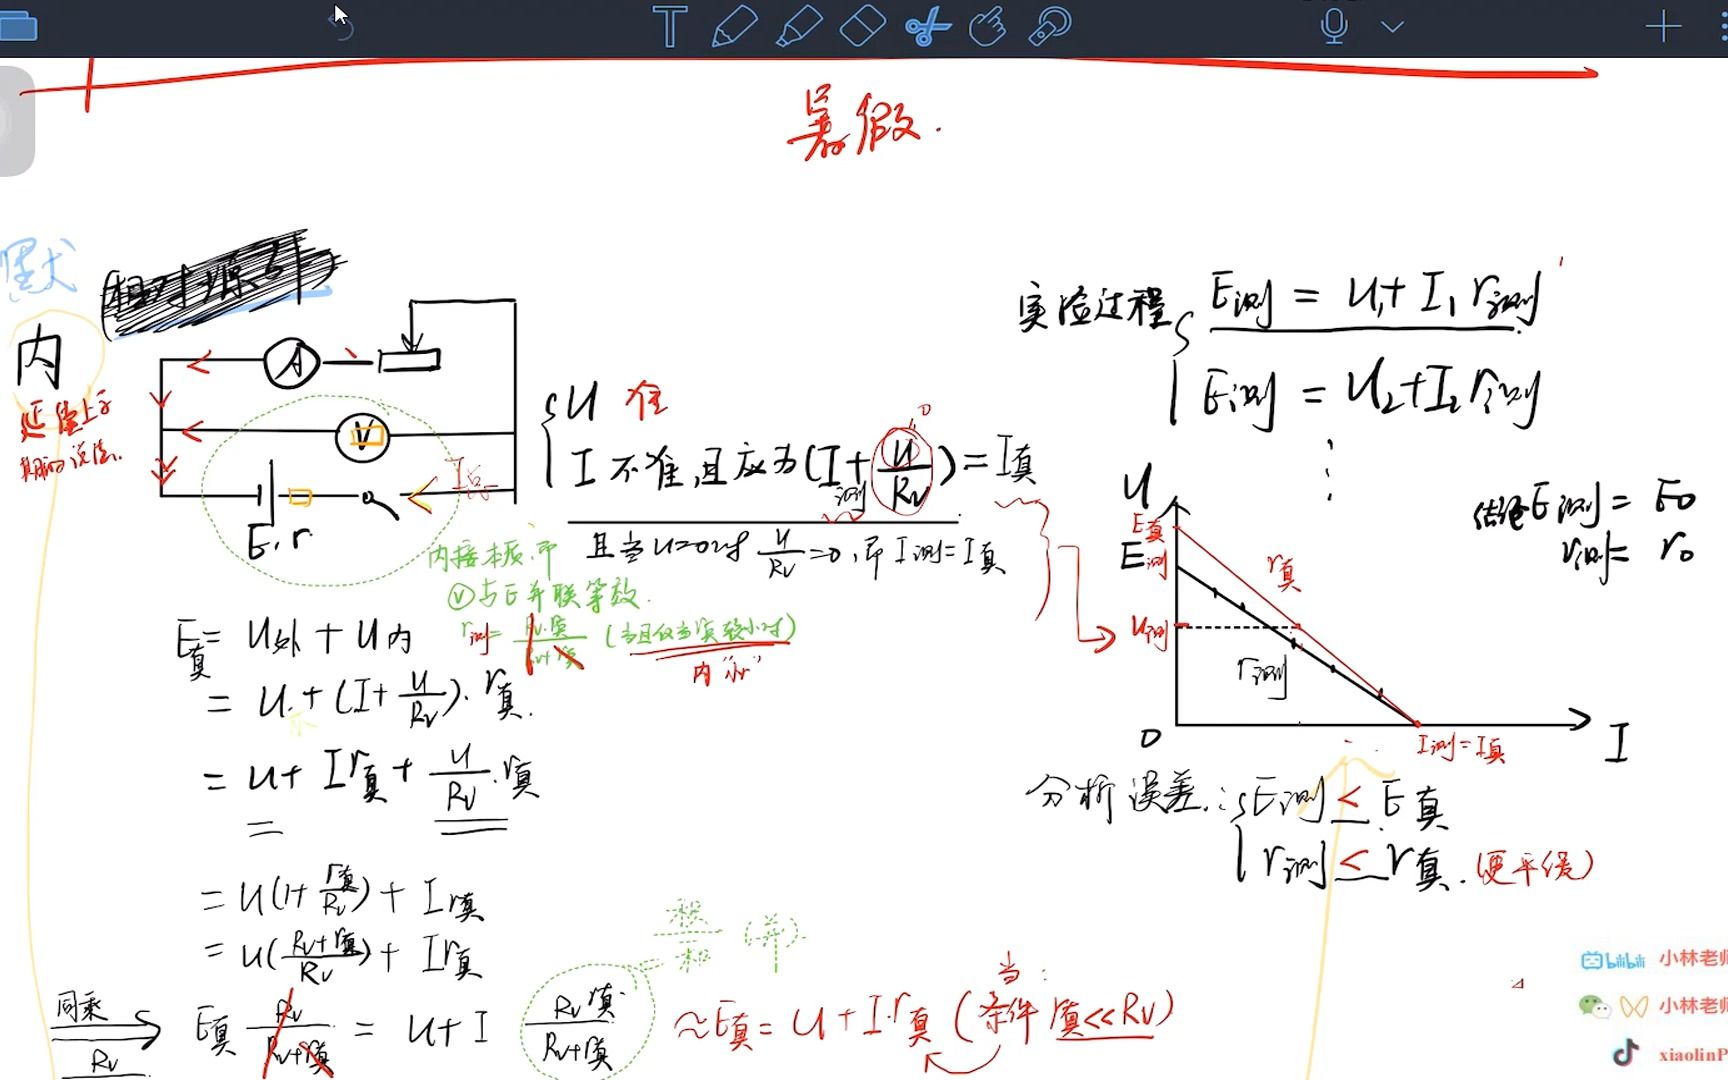 暑假.
默
内
延续上学期的说法.
A
V
I总
E.r
U 准
I 不准,且应为(I测+U/Rv)=I真
0
且当U=0时 U/Rv=0,即 I测=I真
内接本质,即
Ⓥ与E并联等效.
r测=Rv·r真/Rv+r真 (当且仅当r真较小时)
内"小"
E真= U外+U内
= U+(I+U/Rv)·r真.
= U+Ir真+U/Rv·r真
= U(1+r真/Rv)+Ir真
= U(Rv+r真/Rv)+Ir真
同乘
Rv
E真 Rv/Rv+r真 = U+I Rv r真/Rv+r真
积/和 (并)
当:
≈E真=U+I·r真 (条件r真<<Rv)
实验过程
E测=U1+I1r测
E测=U2+I2r测
E测=E0
r测=r0
U
E真
E测
U测
r真
r测
0
I测=I真
I
分析误差:
E测<E真
r测<r真.(更平缓)
bilibili 小林老师
小林老师
xiaolinP